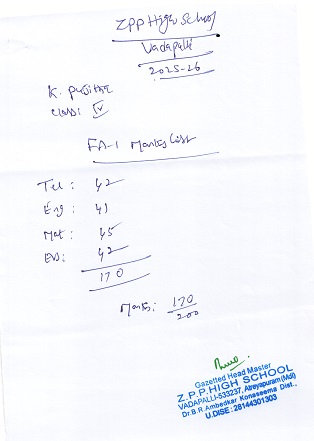 ZPP High School
Vadapalli
2025-26
K. Pujitha
class: IV
FA-1 Marks List
Tel : 42
Eng : 41
Mat : 45
EVS : 42
170
Marks: 170
200
Gazetted Head Master
Z.P.P. HIGH SCHOOL
VADAPALLI-533237, Atreyapuram(Mdl)
Dr.B.R.Ambedkar Konaseema Dist.,
U.DISE : 28144301303